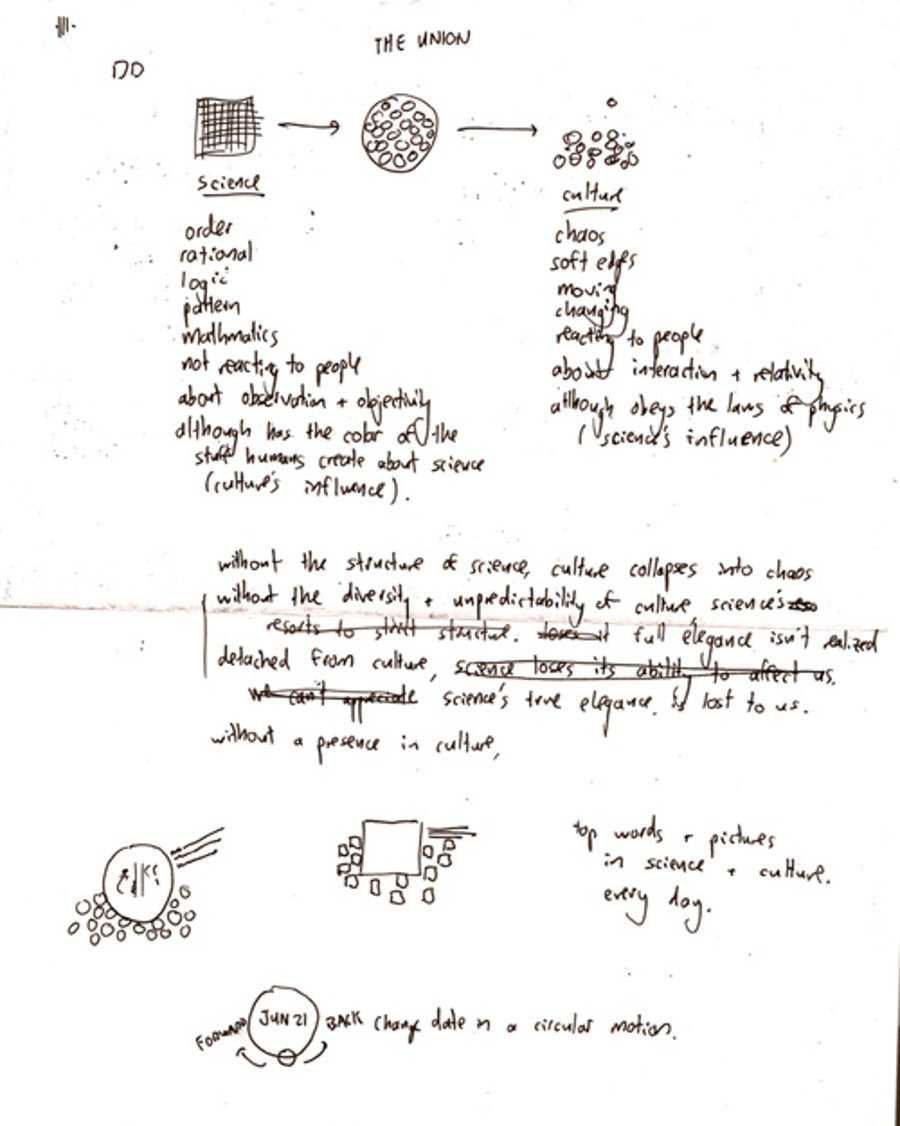 THE UNION
science
order
rational
logic
pattern
mathmatics
not reacting to people
about observation + objectivity
although has the color of the
stuff humans create about science
(culture's influence).
culture
chaos
soft edges
moving
changing
reacting to people
about interaction + relativity
although obeys the laws of physics
(science's influence)
without the structure of science, culture collapses into chaos
without the diversity + unpredictability of culture, science's
resorts to strict structure. loses it full elegance isn't realized
detached from culture, science loses its ability to affect us.
we can't appreciate science's true elegance is lost to us.
without a presence in culture,
top words + pictures
in science + culture.
every day.
FORWARD JUN 21 BACK change date in a circular motion.